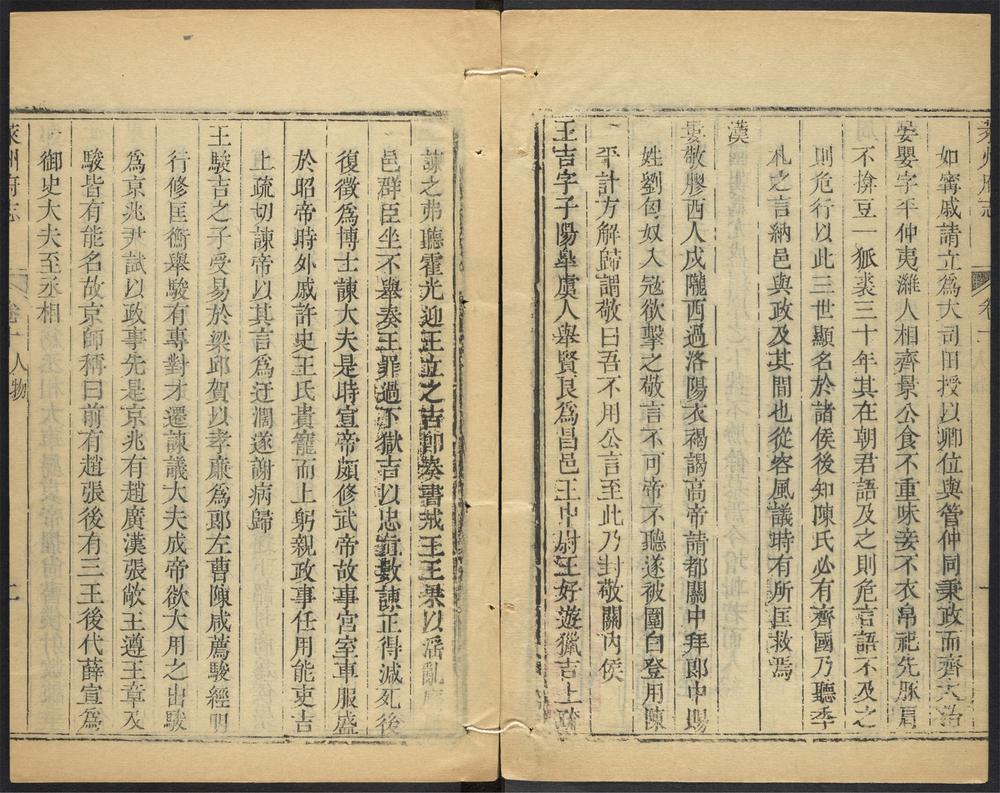 萊州府志
卷十
如甯戚請立爲大司田授以卿位與管仲同秉政而齊大治
晏嬰字平仲夷濰人相齊景公食不重味妾不衣帛祀先豚肩
不揜豆一狐裘三十年其在朝君語及之則危言語不及之
則危行以此三世顯名於諸侯後知陳氏必有齊國乃聽季
札之言納邑與政及其間也從容風議時有所匡救焉
漢
婁敬膠西人戍隴西過洛陽衣褐謁高帝請都關中拜郎中賜
姓劉匈奴入冦欲擊之敬言不可帝不聽遂被圍白登用陳
平計方解歸謂敬曰吾不用公言至此乃封敬關內侯
王吉字子陽臯虞人舉賢良爲昌邑王中尉王好遊獵吉上疏
諫之弗聽霍光迎王立之吉卽奏書戒王王果以淫亂廢
邑群臣坐不舉奏王罪過下獄吉以忠直數諫正得減死後
復徵爲博士諫大夫是時宣帝頗修武帝故事宮室車服盛
於昭帝時外戚許史王氏貴寵而上躬親政事任用能吏吉
上疏切諫帝以其言爲迂濶遂謝病歸
王駿吉之子受易於梁邱賀以孝亷爲郎左曹陳咸薦駿經明
行修匡衡舉駿有專對才遷諫議大夫成帝欲大用之出駿
爲京兆尹試以政事先是京兆有趙廣漢張敞王遵王章及
駿皆有能名故京師稱曰前有趙張後有三王後代薛宣爲
御史大夫至丞相
萊州府志
卷十
人物
二